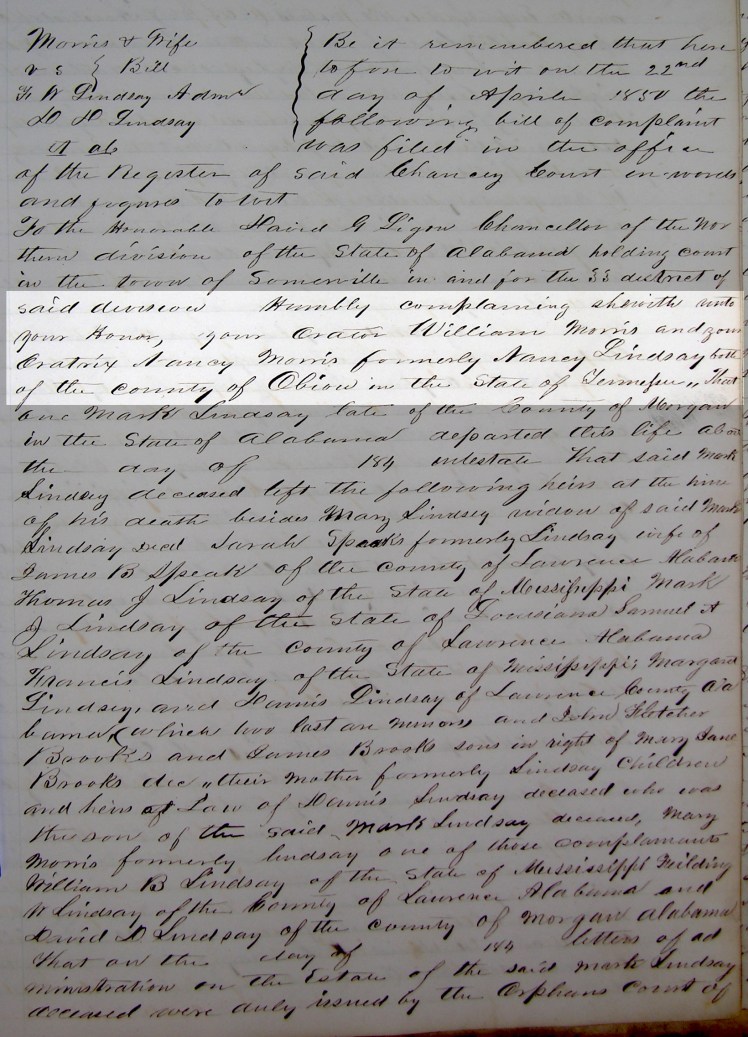 Morris & Wife
vs } Bill
F W Lindsay Admr
D D Lindsay
et al
Be it remembered that here
tofore to wit on the 22nd
day of Aprile 1850 the
following bill of complaint
was filed in the office
of the Register of said Chancey Court in words
and figures to wit
To the Honorable David G Ligon Chancellor of the Nor
thern division of the State of Alabama holding court
in the town of Somerville in and for the 33 district of
said division Humbly complaining sheweth unto
your Honor, your Orator William Morris and your
Oratrix Nancy Morris formerly Nancy Lindsay both
of the county of Obion in the State of Tennessee,, That
one Mark Lindsay late of the County of Morgan
in the State of Alabama departed this life about
the day of 184 intestate That said Mark
Lindsey deceased left the following heirs at the time
of his death besides Mary Lindsey widow of said Mark
Lindsay decd Sarah Speaks formerly Lindsay wife of
James B Speak of the county of Lawrence Alabama
Thomas J Lindsay of the State of Mississippi Mark
J Lindsay of the State of Louisiana Samuel A
Lindsay of the County of Lawrence Alabama
Francis Lindsay of the State of Mississippi; Margaret
Lindsey, and Dannis Lindsay of Lawrence County Ala
bama (which two last are minors and John Fletcher
Brooks and James Brooks sons in right of Mary Jane
Brooks dec,, their Mother formerly Lindsay Children
and heirs at Law of Dannis Lindsay deceased who was
the son of the said Mark Lindsay deceased, Mary
Morris formerly lindsay one of those complainants
William B Lindsay of the State of Mississippi
W Lindsay of the County of Lawrence Alabama and
David D Lindsay of the county of Morgan Alabama
That on the day of 184 letters of ad
ministration on the Estate of the said Mark Lindsay
deceased were duly issued by the Orphans Court of